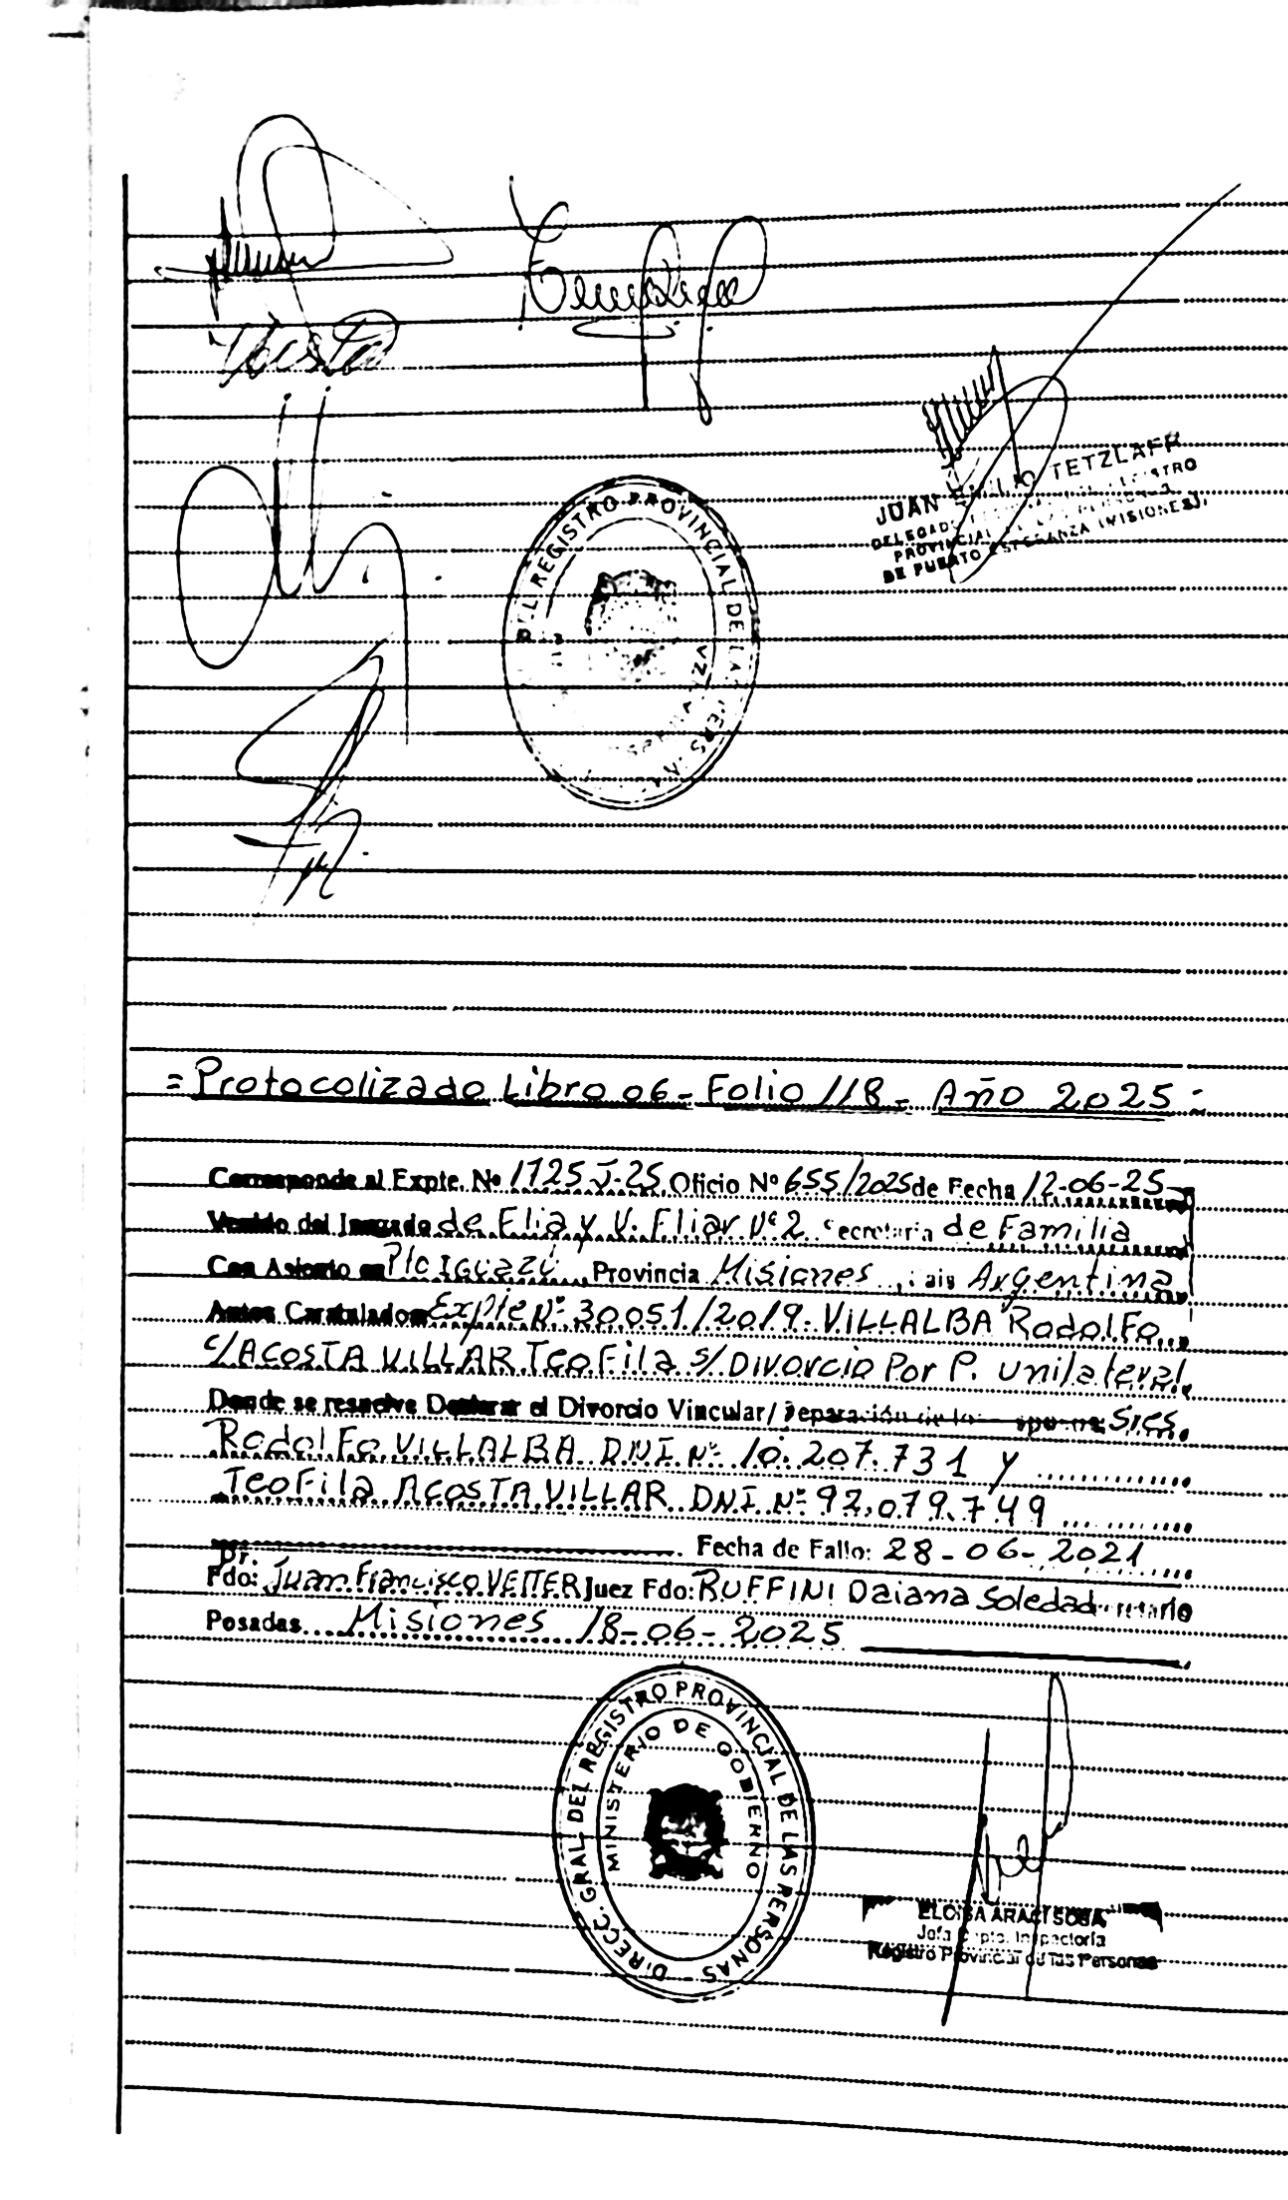 Acosta
JUAN TETZLAFF
DELEGADO REGISTRO
PROVINCIAL DE LAS PERSONAS
DE PUERTO ESPERANZA (MISIONES)
REGISTRO PROVINCIAL DE LAS PERSONAS
= Protocolizado Libro 06 - Folio 118 - Año 2025 =
Corresponde al Expte. Nº 1725-J-25 Oficio Nº 655/2025 de Fecha 12-06-25
Venido del Juzgado de Flia y V. Fliar Nº 2 Secretaria de Familia
Con Asiento en Pto Iguazú Provincia Misiones, Pais Argentina
Autos Caratulados Expte Nº 30051/2019. VILLALBA Rodolfo
c/ ACOSTA VILLAR Teofila s/ Divorcio Por P. Unilateral
Donde se resuelve Declarar el Divorcio Vincular/ Separación de Sres
Rodolfo VILLALBA D.N.I. Nº 10.207.731 y
Teofila ACOSTA VILLAR DNI Nº 92.079.749
Fecha de Fallo: 28-06-2021
Fdo: Dr. Juan Francisco VETTER Juez Fdo: RUFFINI Daiana Soledad Secretario
Posadas Misiones 18-06-2025
DIRECC. GRAL. DEL REGISTRO PROVINCIAL DE LAS PERSONAS
MINISTERIO DE GOBIERNO
ELOISA ARACI SOSA
Jefa Dpto. Inspectoría
Registro Provincial de las Personas